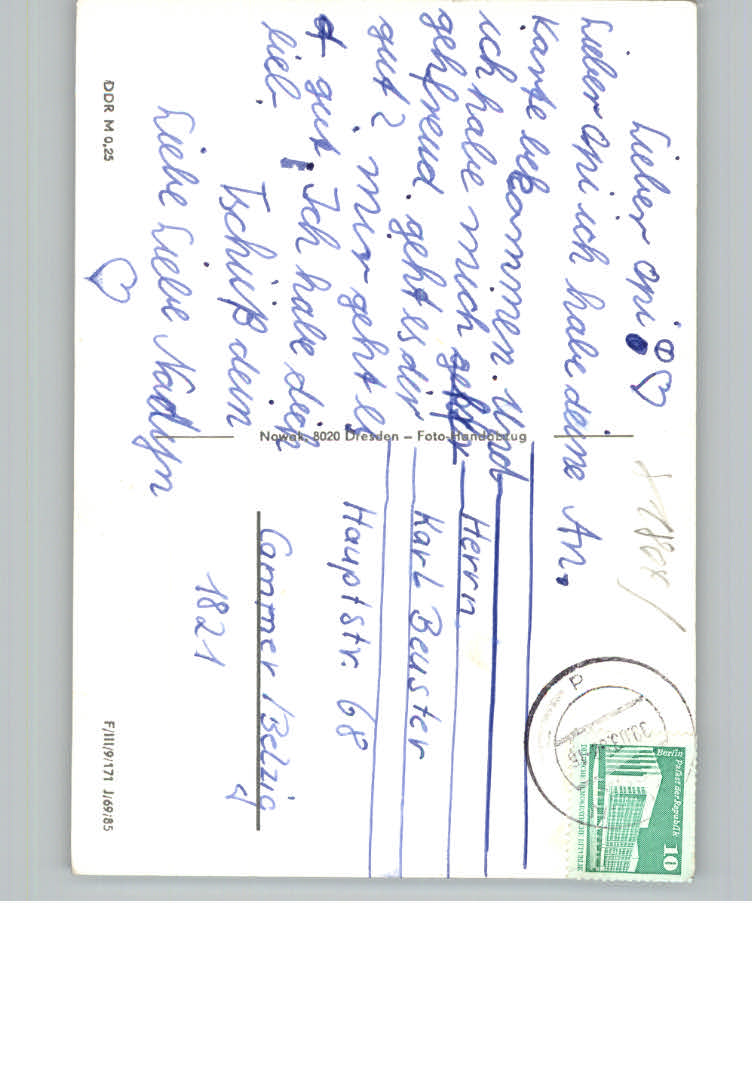 Lieber opi
Lieber opi ich habe deine An.
Karte bekommen. Und
ich habe mich
gehfreud. geht es dir
gut? mir geht es
gut. Ich habe dich
lieb.
Tschüß dein
Liebe Liebe Nadyn
DDR M 0,25
Nowak, 8020 Dresden – Foto-Handabzug
Herrn
Karl Beuster
Hauptstr. 68
Cammer / Belzig
1821
F/III/9/171 J/69/85
Berlin
Palast der Republik
10
DEUTSCHE DEMOKRATISCHE REPUBLIK